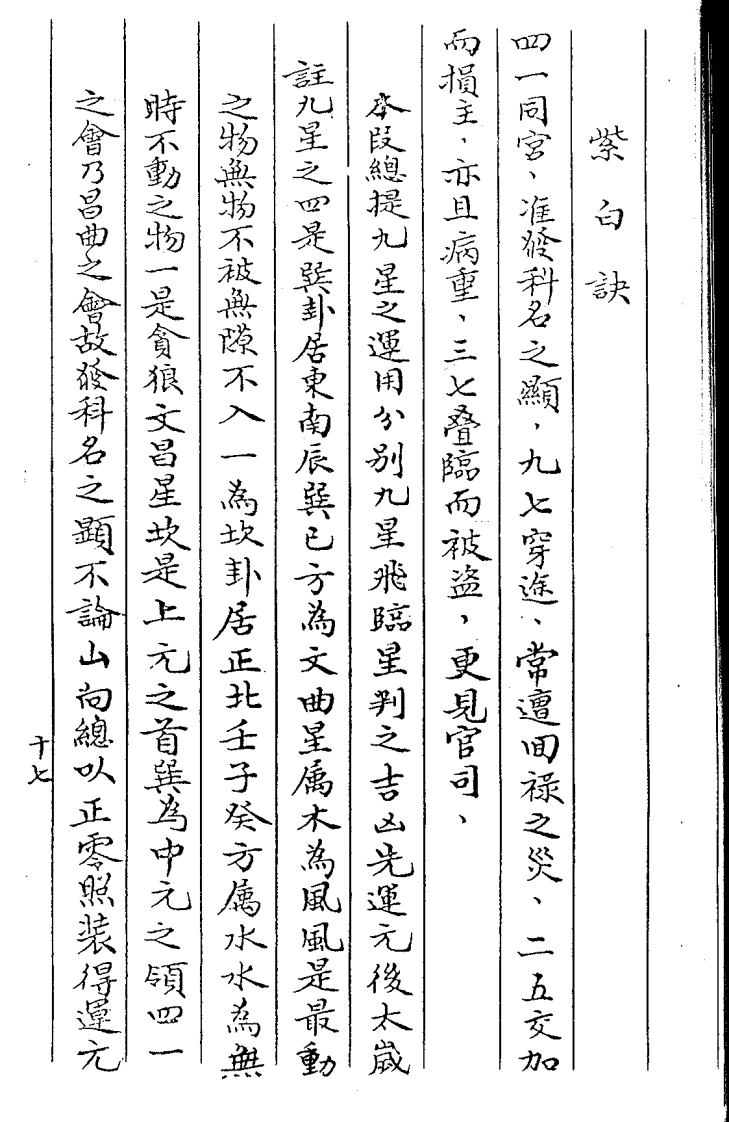 紫白訣
四一同宮、准發科名之顯，九七穿途、常遭回祿之災、二五交加
而損主，亦且病重、三七疊臨而被盜，更見官司、
本段總提九星之運用分別九星飛臨星判之吉凶先運元後太歲
註九星之四是巽卦居東南辰巽巳方為文曲星属木為風風是最動
之物無物不被無隙不入一為坎卦居正北壬子癸方属水水為無
時不動之物一是貪狼文昌星坎是上元之首巽為中元之領四一
之會乃昌曲之會故發科名之顕不論山向總以正零照装得運元
十七